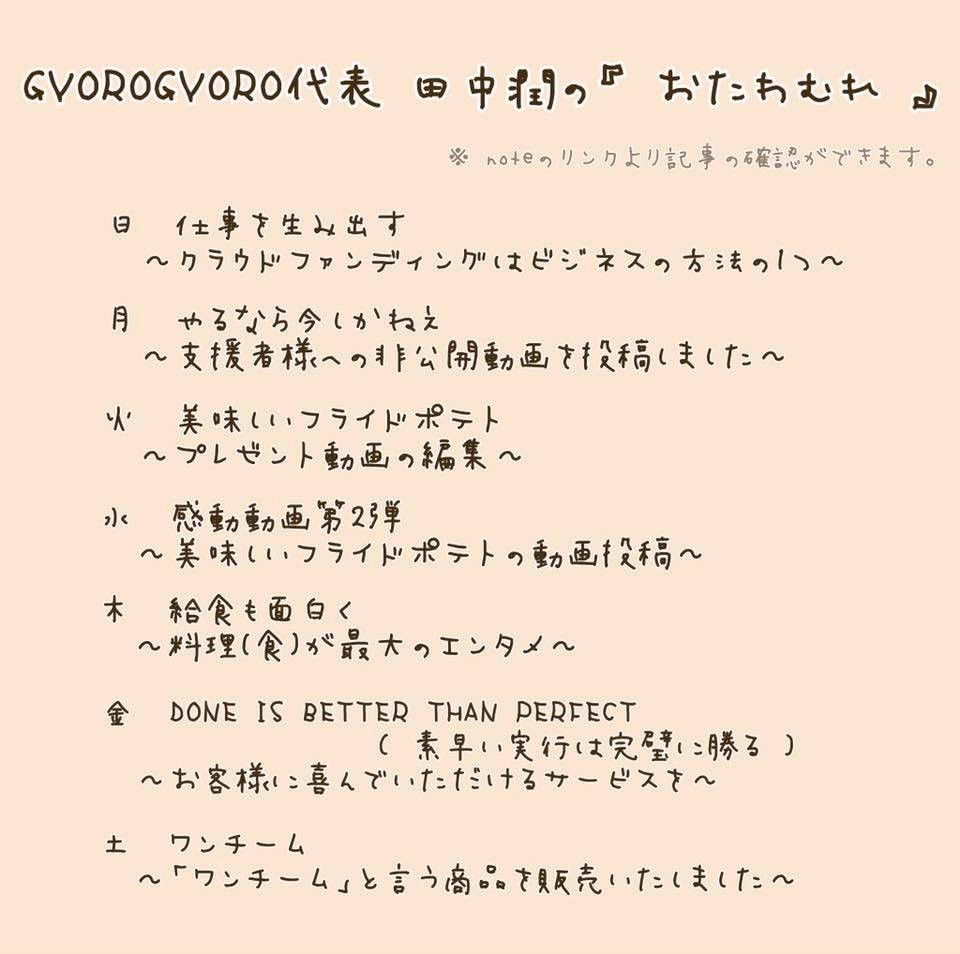 GYOROGYORO代表 田中潤の『 おたわむれ 』
※ noteのリンクより記事の確認ができます。
日 仕事を生み出す
～クラウドファンディングはビジネスの方法の1つ～
月 やるなら今しかねえ
～支援者様への非公開動画を投稿しました～
火 美味しいフライドポテト
～プレゼント動画の編集～
水 感動動画第2弾
～美味しいフライドポテトの動画投稿～
木 給食も面白く
～料理(食)が最大のエンタメ～
金 DONE IS BETTER THAN PERFECT
( 素早い実行は完璧に勝る )
～お客様に喜んでいただけるサービスを～
土 ワンチーム
～「ワンチーム」と言う商品を販売いたしました～